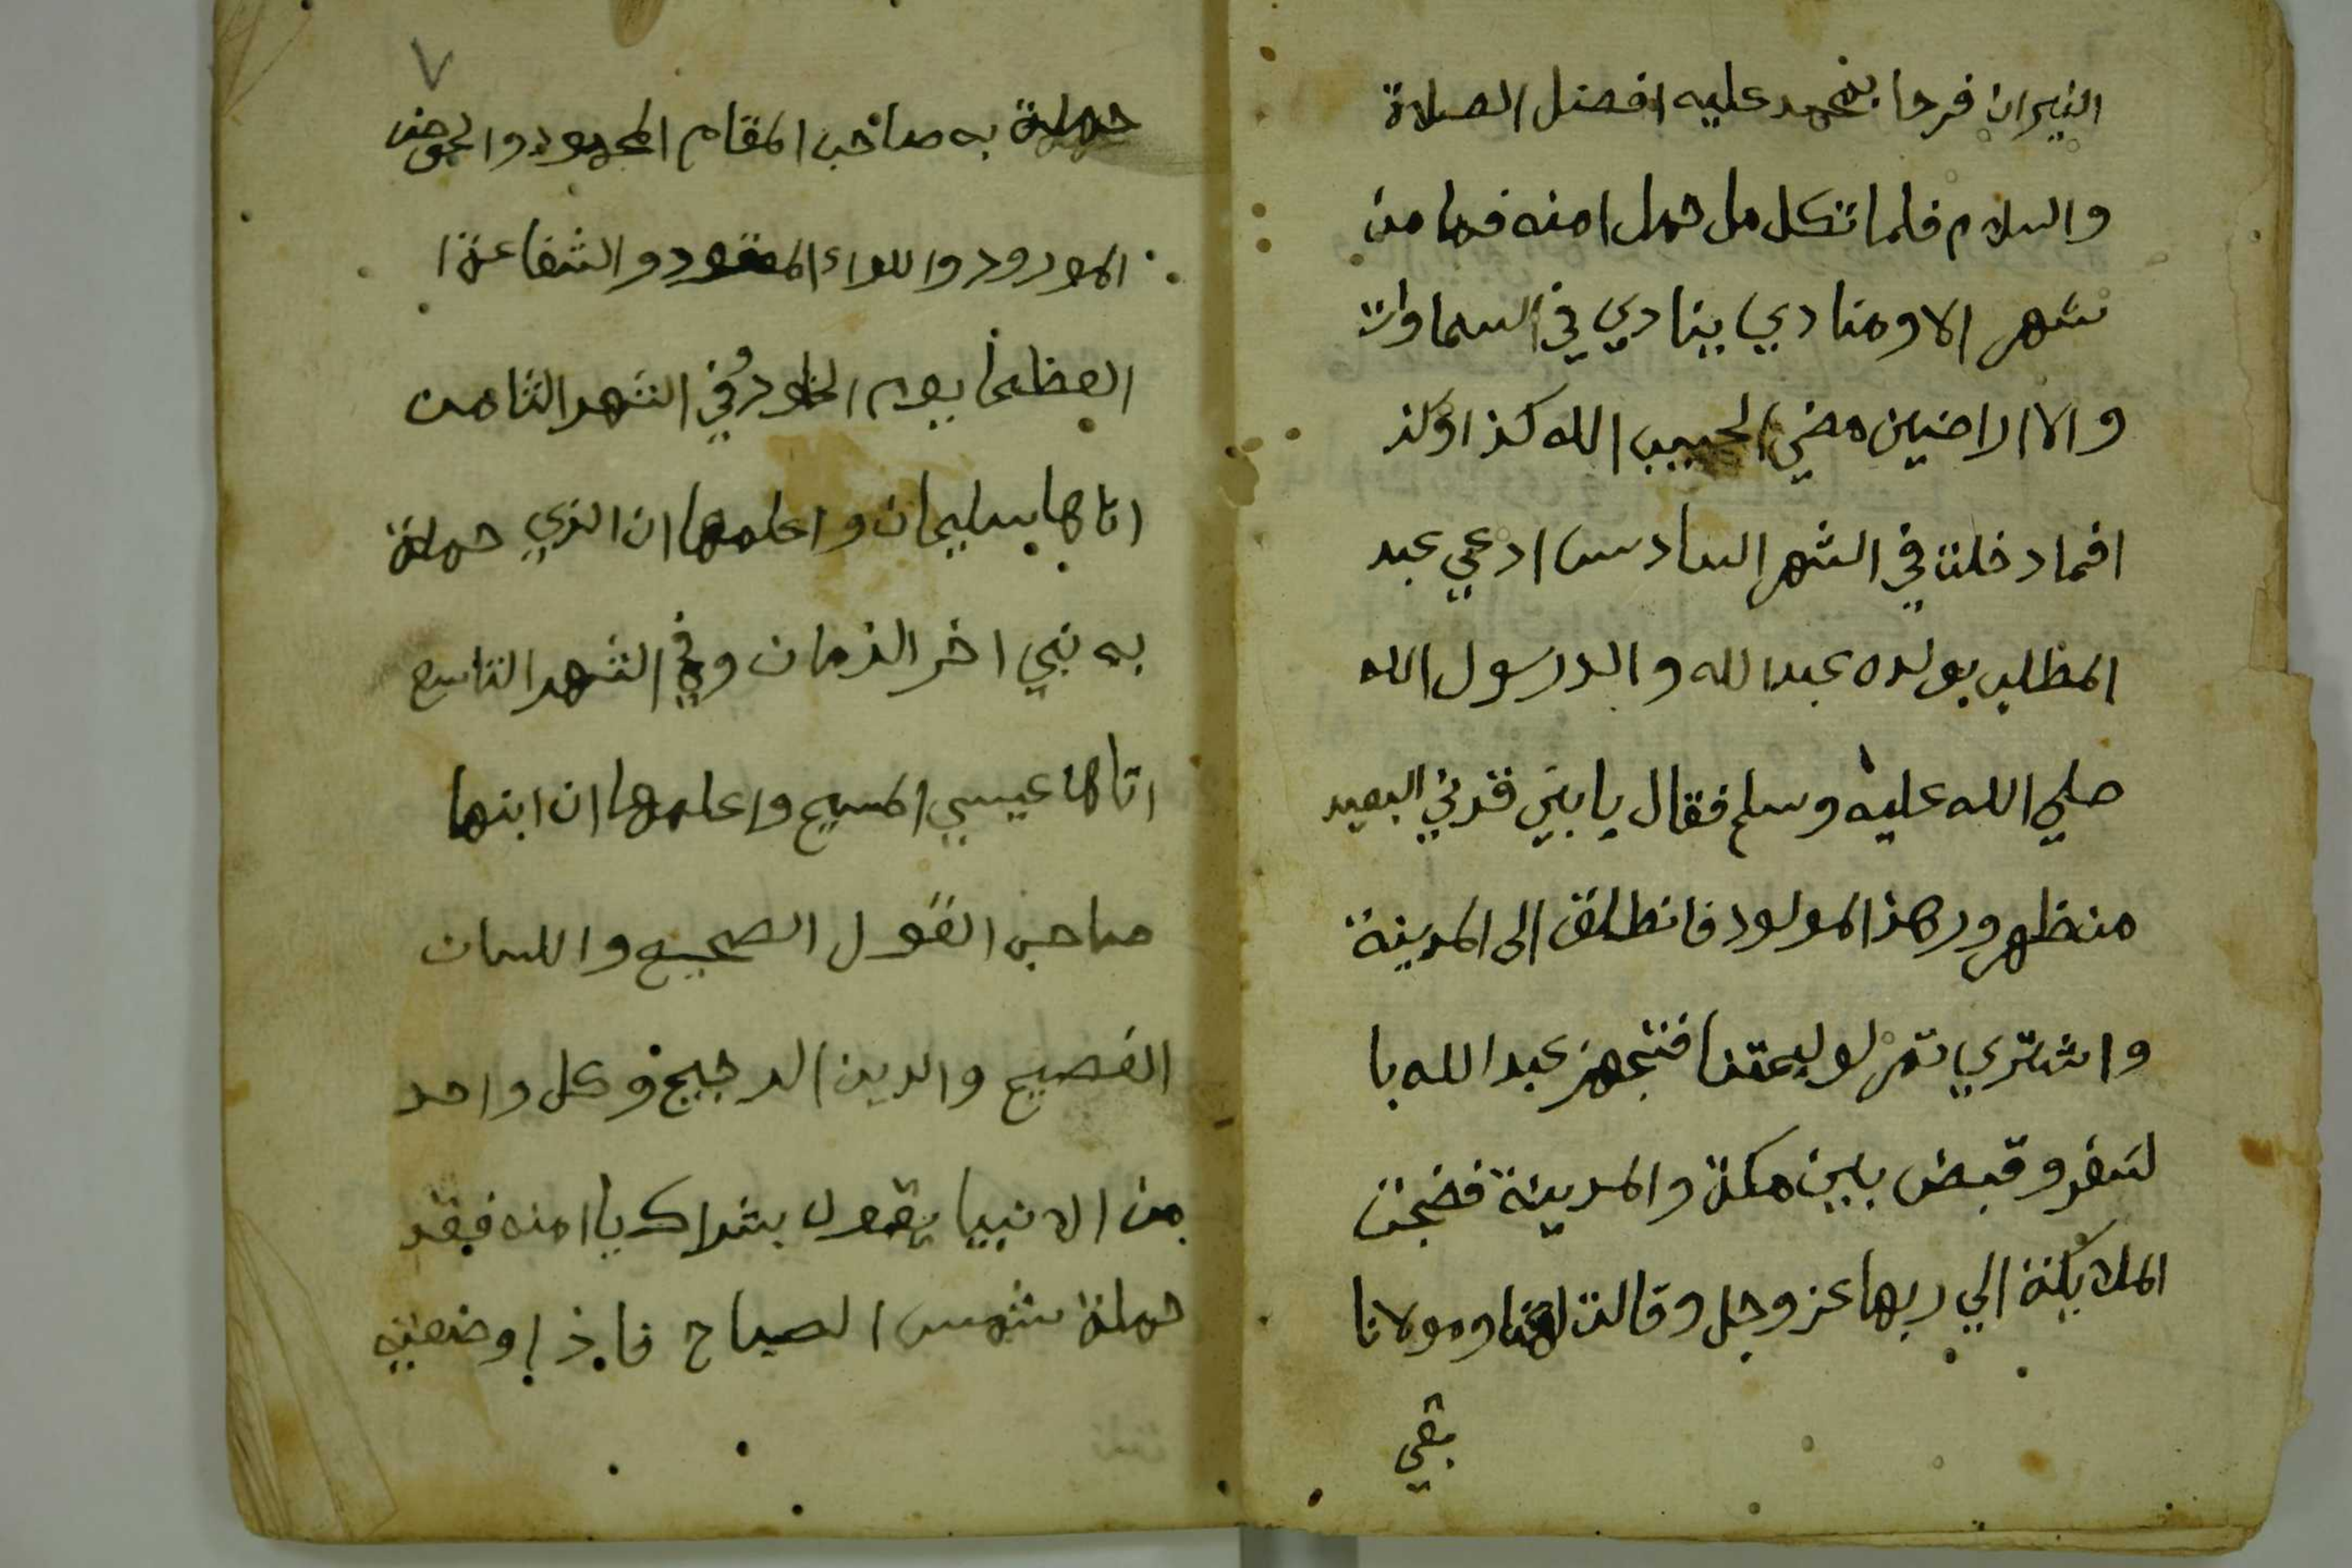 النيران فرحا بمحمد عليه افضل الصلاة
والسلام فلما تكل مل حمل امنه فما من
شهر الا ومنادي ينادي في السماوات
والا اراضين مضي لحبيب الله كذا وكذ
افما دخلت في الشهر السادس ادعي عبد
المظلب بولده عبد الله والد رسول الله
صلي الله عليه وسلم فقال يا بني قد ني البعيد
من ظهور هذ المولود فانطلق الى المدينة
واشتري تمر لوليمتنا فتجهز عبد الله با
لسفر وقبض بين مكة والمدينة فضجت
الملايكة الي ربها عز وجل وقالت الهنا ومولانا
بقي
٧
حملة به صاحب المقام المحمود والحوض
المورود واللواء المعقود والشفاعة ا
العظما يوم الخلود وفي الشهر الثامن
اتاها سليمان واعلمها ان الذي حملة
به نبي اخر الزمان وفي الشهر التاسع
اتاها عيسي المسيح واعلمها ان ابنها
صاحب القول الصحيح واللسان
الفصيح والدين الرجيح وكل واحد
من الانبيا يقول بشراك يا امنه فقد
حملة شمس الصباح فاذا وضعتيه